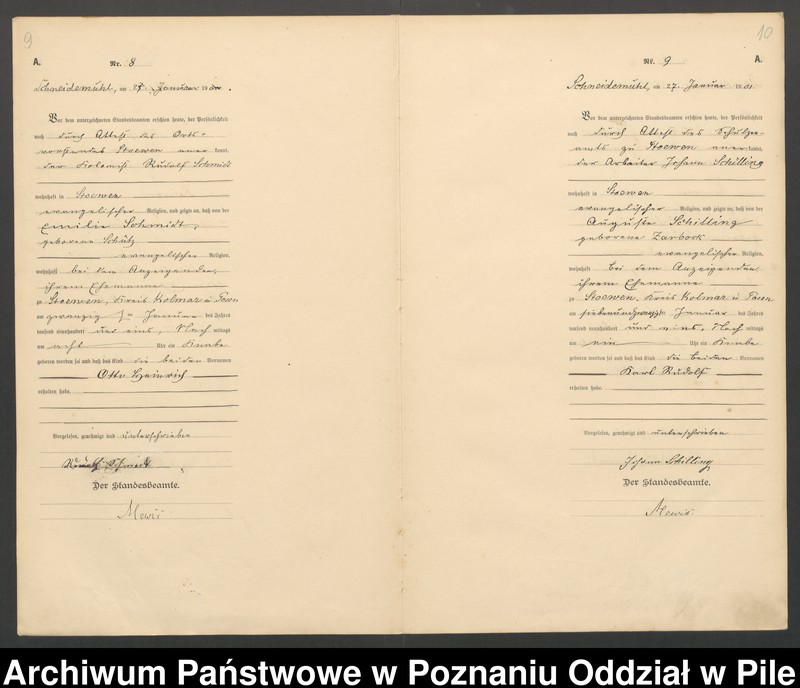 9
A.
Nr. 8
Schneidemühl, am Januar 19
Vor dem unterzeichneten Standesbeamten erschien heute, der Persönlichkeit
nach durch Attest des Orts-
vorstandes Stoewen anerkannt,
der Kolonist Rudolf Schmidt
wohnhaft in Stoewen
evangelischer Religion, und zeigte an, daß von der
Emilie Schmidt,
geborene Schütz
evangelischer Religion,
wohnhaft bei dem Anzeigenden,
ihrem Ehemanne
zu Stoewen, Kreis Kolmar i/ Posen
am Januar des Jahres
tausend neunhundert und eins, Nachmittags
um acht Uhr ein Knabe
geboren worden sei und daß das Kind die beiden Vornamen
Otto Heinrich
erhalten habe.
Vorgelesen, genehmigt und unterschrieben
Schmidt
Der Standesbeamte.
Mewis
10
A.
Nr. 9
Schneidemühl, am 27. Januar 1901
Vor dem unterzeichneten Standesbeamten erschien heute, der Persönlichkeit
nach durch Attest des Schulzen-
amts zu Stoewen anerkannt,
der Arbeiter Johann Schilling
wohnhaft in Stoewen
evangelischer Religion, und zeigte an, daß von der
Auguste Schilling
geborene Zarbock
evangelischer Religion,
wohnhaft bei dem Anzeigenden
ihrem Ehemanne
zu Stoewen, Kreis Kolmar i/ Posen
am Januar des Jahres
tausend neunhundert und eins, Nachmittags
um ein Uhr ein Knabe
geboren worden sei und daß das Kind die beiden Vornamen
Karl Rudolf
erhalten habe.
Vorgelesen, genehmigt und unterschrieben
Johann Schilling
Der Standesbeamte.
Mewis
Archiwum Państwowe w Poznaniu Oddział w Pile